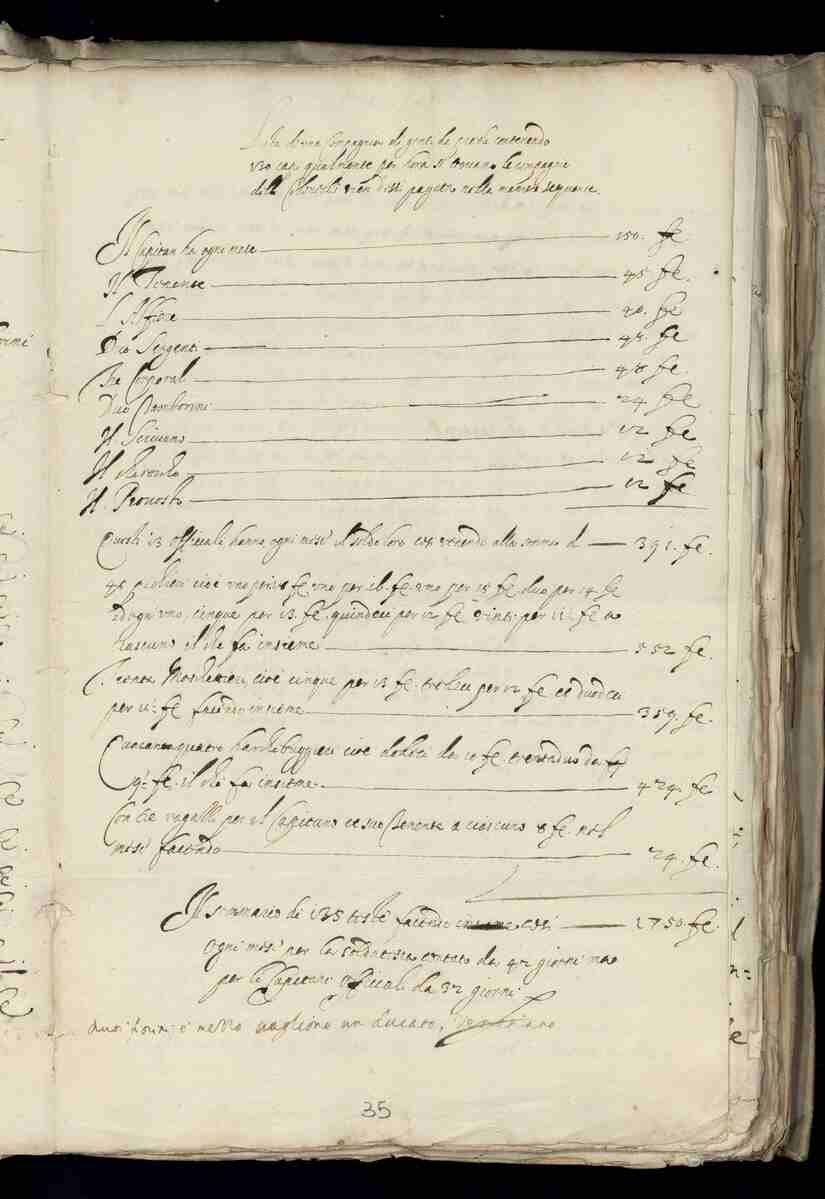 Lista di una Compagnia di genti da piede contenendo
130 capi qualmente per hora si trouano le compagnie
delli Colonelli vien dist pagato nella maniera sequente.
Il Capitan ha ogni mese 150. fe
Il Tenente 45 fe.
L'Alfiere 40. fe
Duo Sergenti 48. fe
Tre Corporal 48 fe.
Duo Tamborini 24 fe
Il Scriuano 12 fe
Il 12 fe
Il Preuosto 12 fe
Questi 13 Officiali hanno ogni mese il soldo loro così venendo alla somma di 391. fe.
45 picchieri cioè uno per 18 fe. uno per 16. fe. uno per 15 fe. duo per 14 fe
ad ogni uno, cinque per 13. fe. quindeci per 12 fe vinti per 11. fe a
ciascuno il che fa insieme 552 fe.
Trenta Moschettieri, cioè cinque per 13 fe. tredeci per 12 fe et duodeci
per 11. fe facendo insieme 359. fe.
Quarantaquattro harchebuggieri cioè dodeci da 10 fe. trentaduo da
9. fe. il che fa insieme 424. fe
Con tre ragalli per il Capitano et suo Tenente a ciascuno 8 fe. nel
mese facendo 24. fe.
Il sommario di 135 teste facendo così 1750. fe
Ogni mese per la soldatesca contato da 42 giorni ma
per li Capitani Officiali da 32 giorni
duoi fiorini e mezzo vagliono un ducato,
35